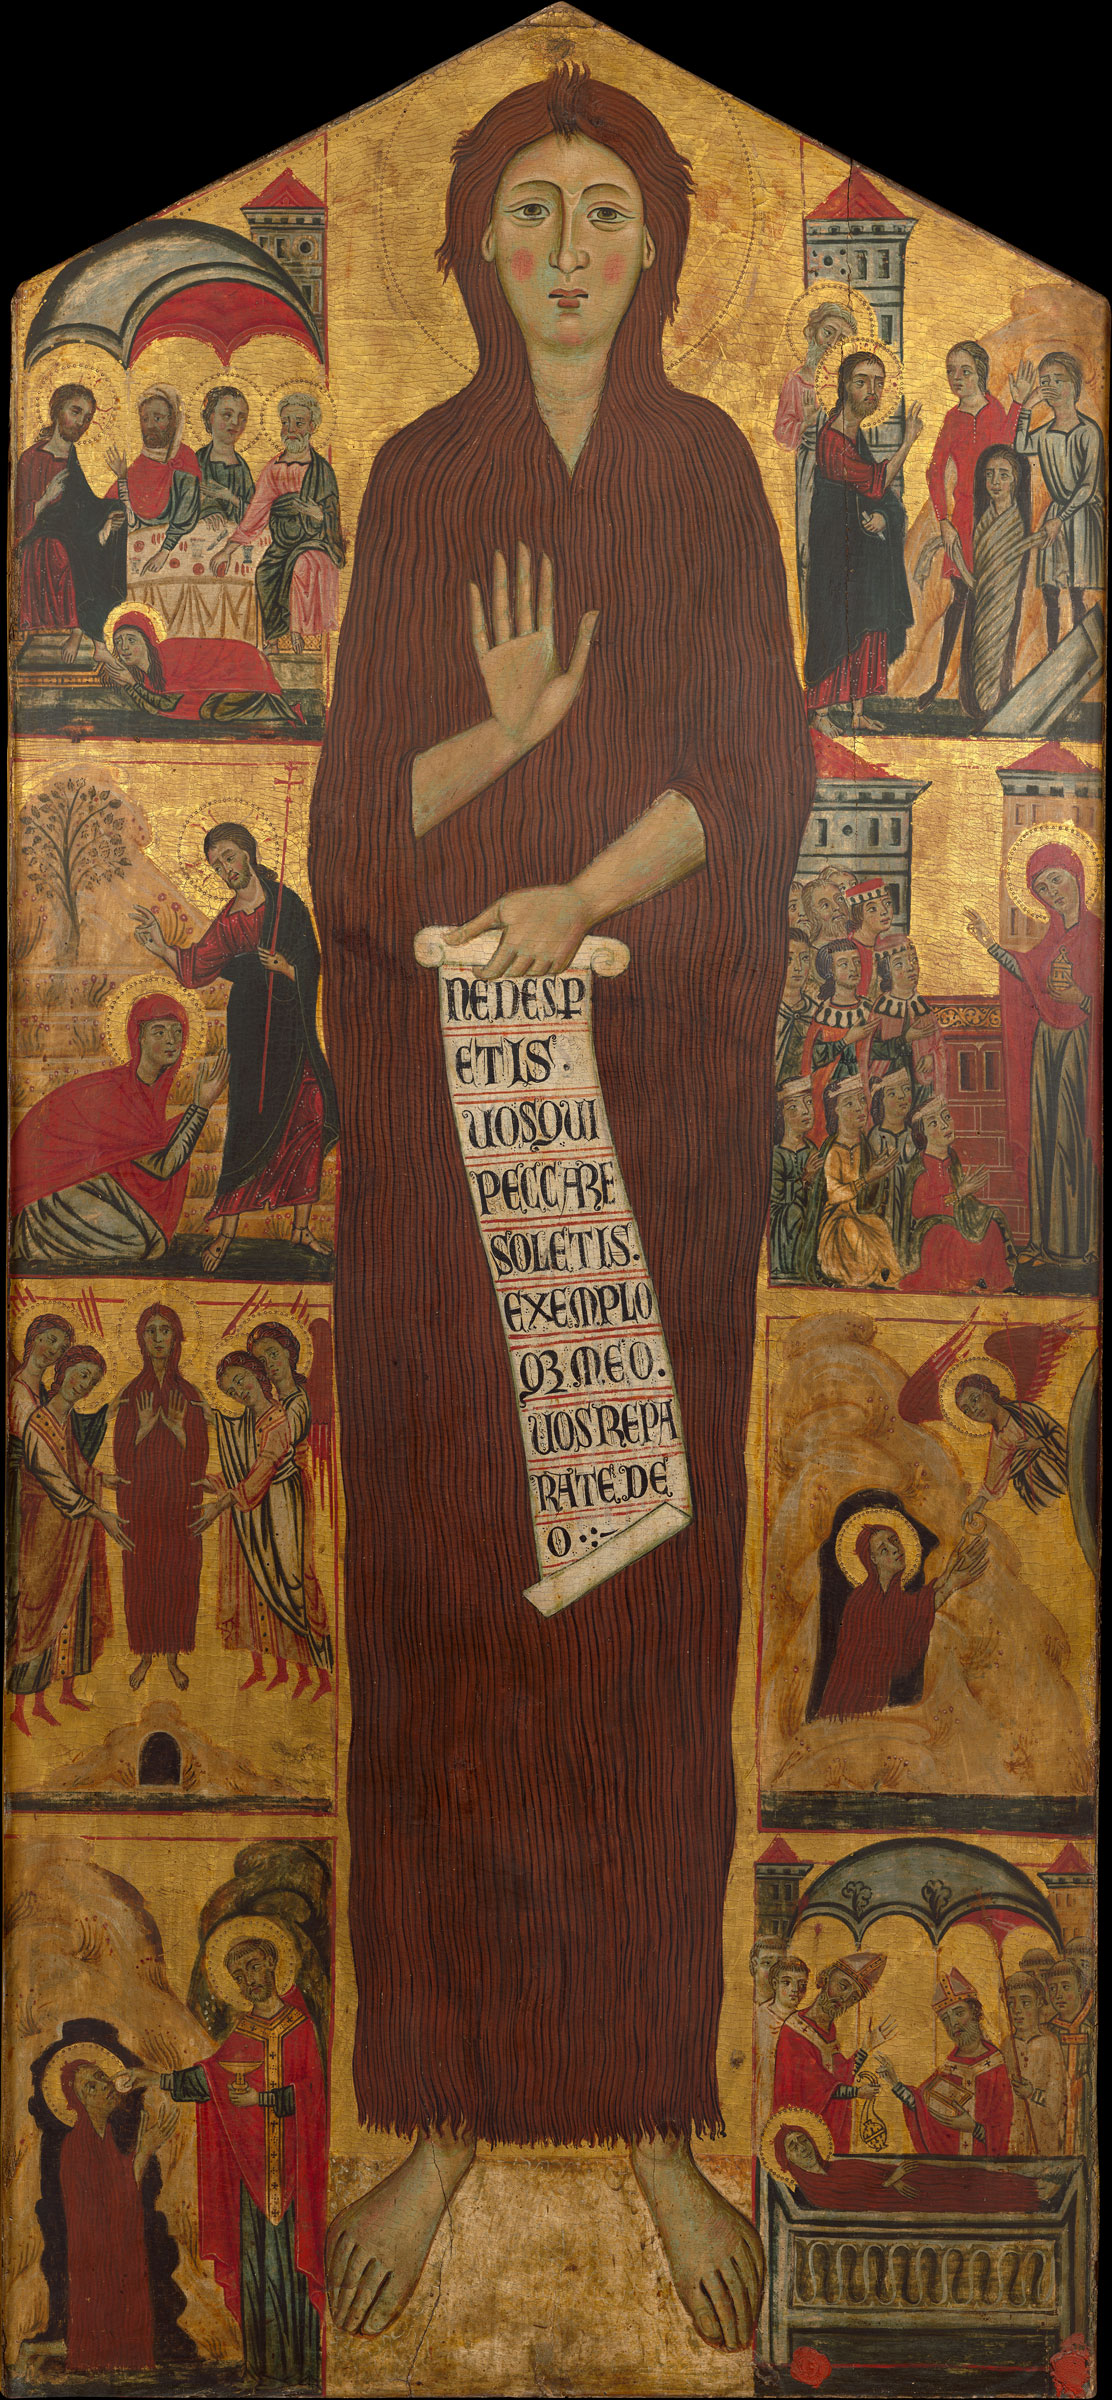 NEDESP
ETIS.
UOSQUI
PECCARE
SOLETIS.
EXEMPLO
QꝪ MEO.
UOS REPA
RATE. DE
O